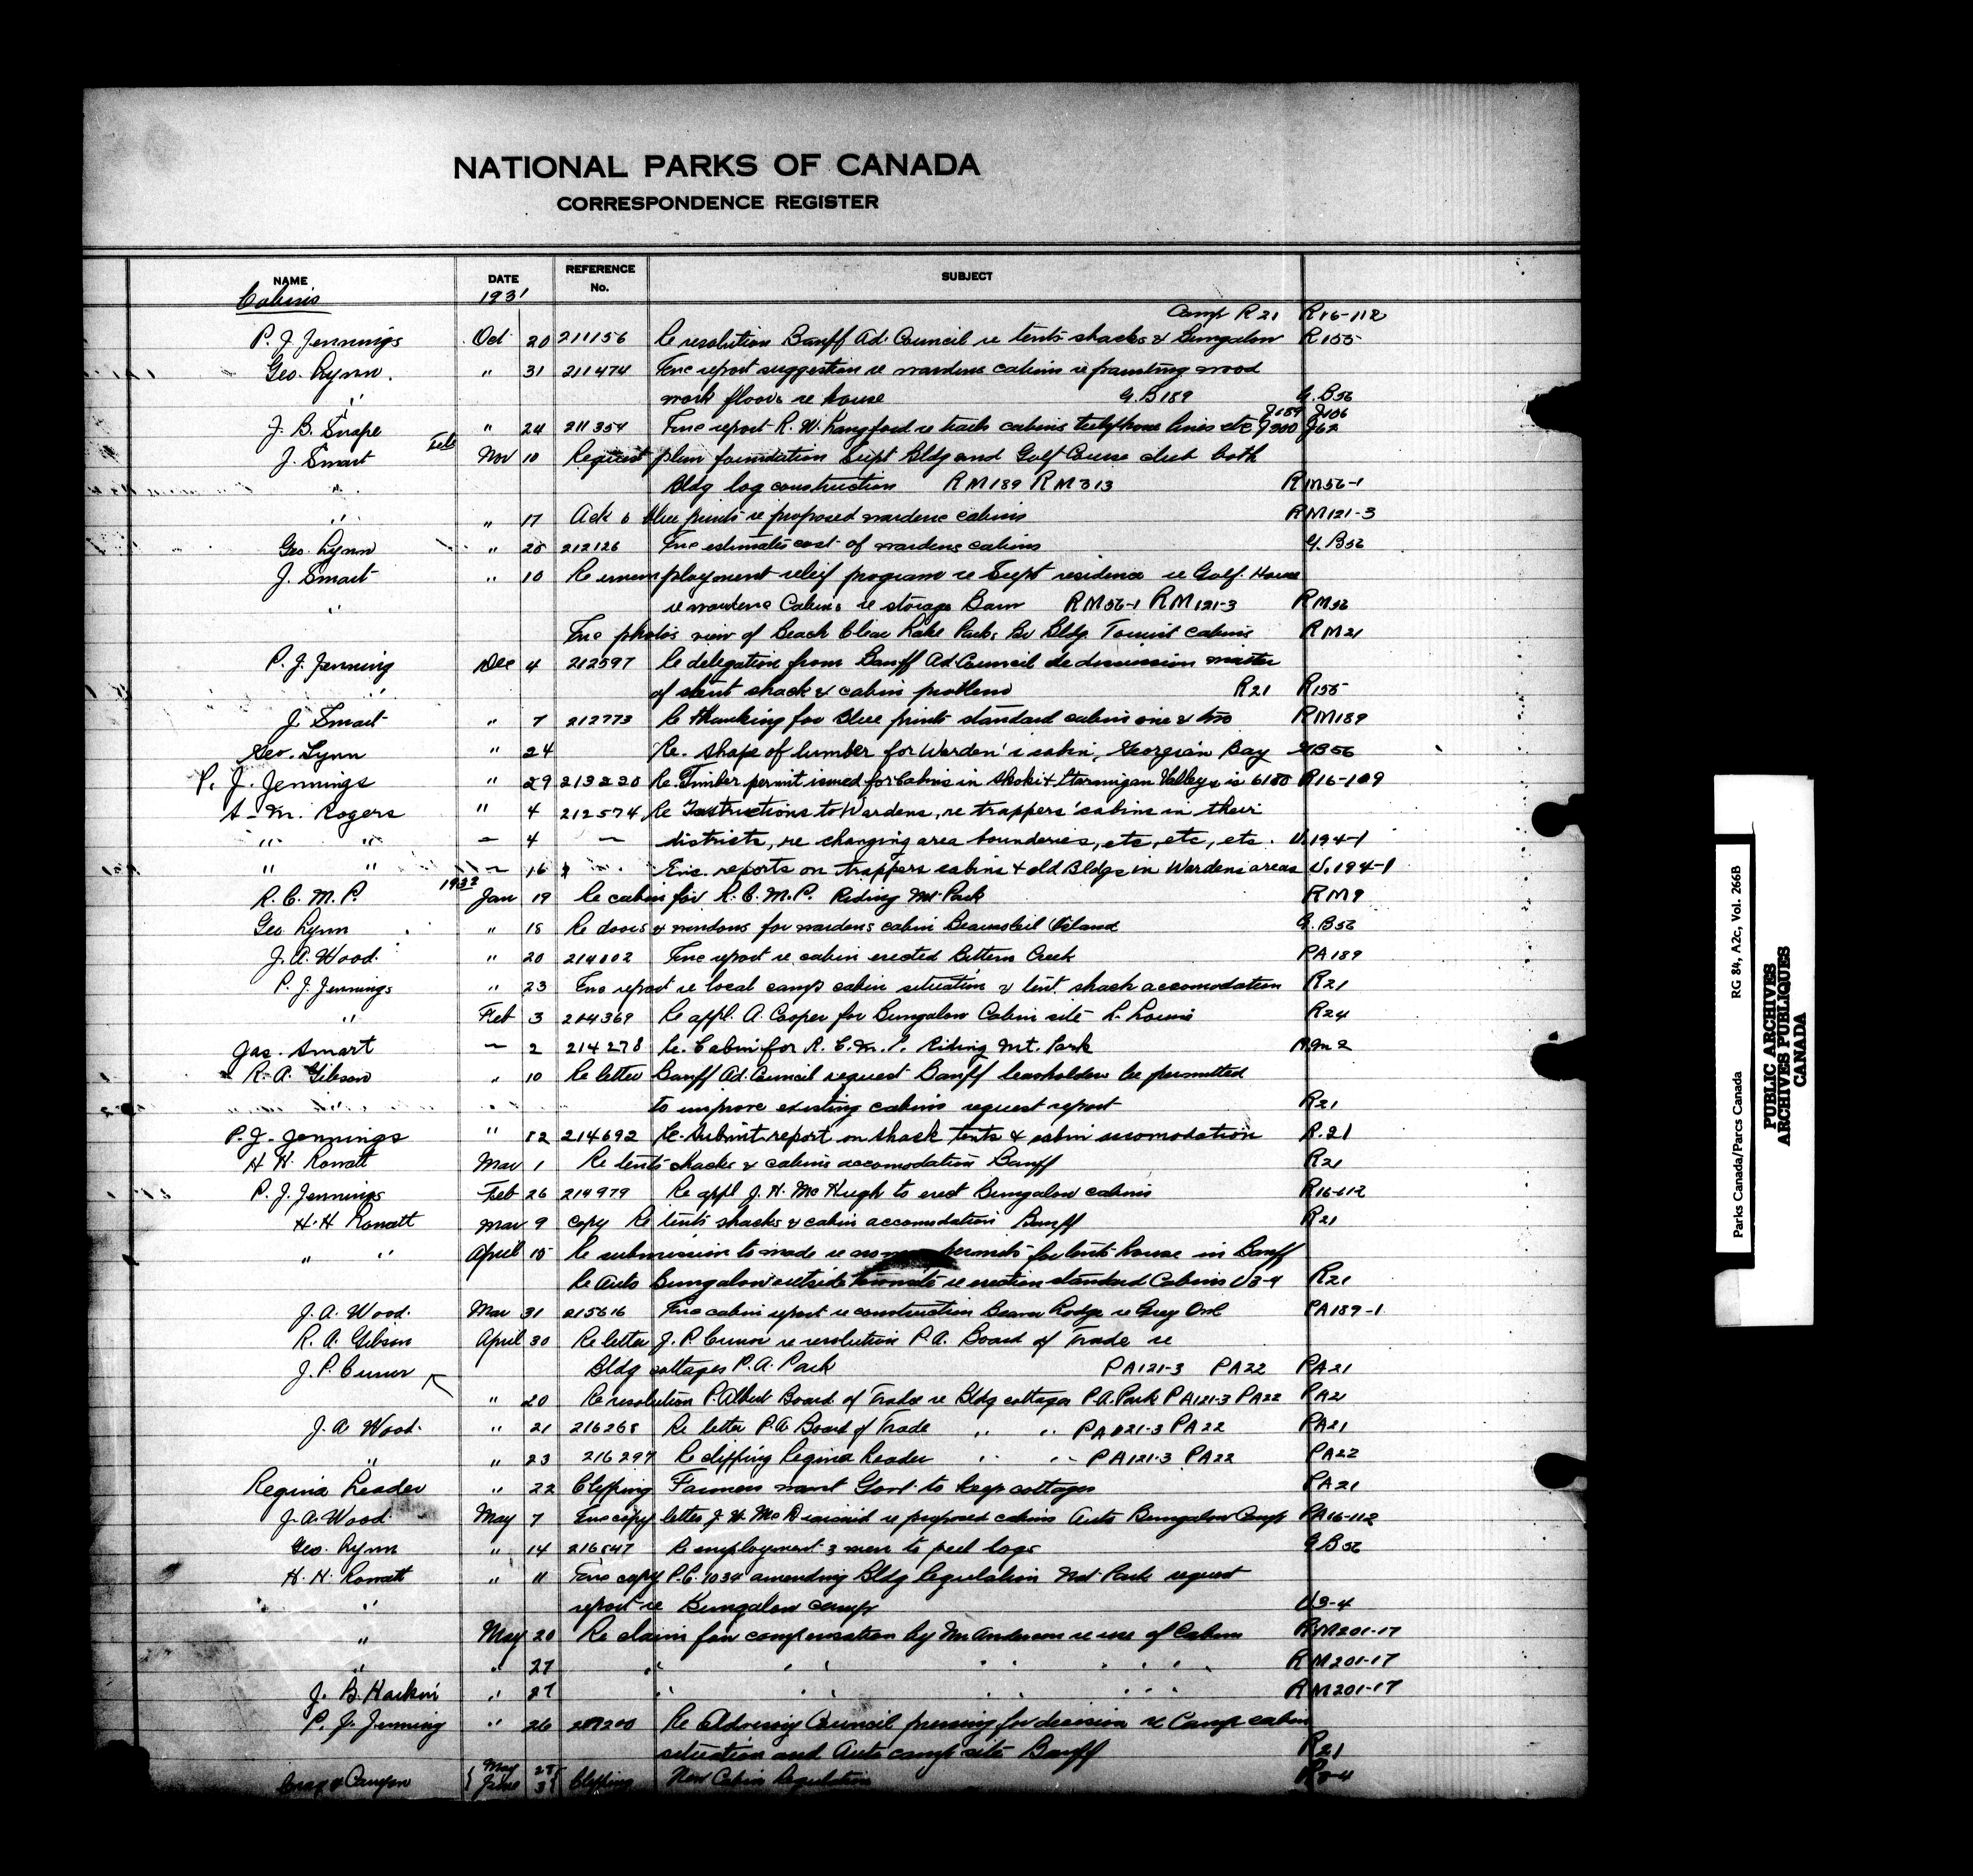 NATIONAL PARKS OF CANADA
CORRESPONDENCE REGISTER
NAME DATE REFERENCE No. SUBJECT
Cabins 1931
Camp R21 R16-112
P. J. Jennings Oct 20 211156 Re resolution Banff Ad. Council re tents shacks & Bungalow R155
Geo. Lynn. " 31 211474 Enc report suggestion re wardens cabins re painting wood
" work floors re house G.B189 G.B56
J189 J106
J. B. Snape " 24 211354 Enc report R. W. Langford re trails cabins telephone lines etc J300 J62
J. Smart Tele Nov 10 Request plan foundation Supt Bldg and Golf Course club both
" Bldg log construction RM189 RM313 RM56-1
" " 17 Ack blue prints re proposed wardens cabins RM121-3
Geo. Lynn " 25 212126 Enc estimates cost of wardens cabins G.B56
J. Smart " 10 Re unemployment relief program re Supt residence re Golf House
" re wardens Cabins re storage Barn RM56-1 RM121-3 RM56
Enc photos view of Beach Clear Lake Park Bldg Tourist cabins RM21
P. J. Jenning Dec 4 212597 Re delegation from Banff Ad. Council discussion matter
" of tent shack & cabin problem R21 R155
J. Smart " 7 212773 Re thanking for blue prints standard cabin one & two RM189
Geo. Lynn " 24 Re. shape of lumber for Warden's cabin, Georgian Bay GB56
P. J. Jennings " 29 213220 Re. Timber permit issued for Cabins in Skoki & Ptarmigan Valleys is 6180 R16-109
A-M. Rogers " 4 212574 Re Instructions to Wardens, re trappers' cabins in their
" " — 4 — districts, re changing area bounderies, etc, etc, etc. U.194-1
" " — 16 Enc. reports on trappers cabins & old Bldgs in Wardens areas U.194-1
1932
R. C. M. P. Jan 19 Re cabin for R. C. M. P. Riding Mt Park RM9
Geo Lynn " 18 Re doors & windows for wardens cabin Beausoleil Island G.B56
J. A. Wood. " 20 214002 Enc report re cabin erected Bittern Creek PA189
P. J. Jennings " 23 Enc report re local camp cabin situation & tent shack accomodation R21
" Feb 3 214369 Re appl. A. Cooper for Bungalow Cabin site L. Louise R24
Jas. Smart — 2 214278 Re. Cabin for R. C. M. P. Riding Mt. Park
R. A. Gibson " 10 Re letter Banff Ad. Council request Banff leaseholders be permitted
to improve existing cabins request report R21
P. J. Jennings " 12 214692 Re. Submit report on shack tents & cabin accomodation R.21
H. H. Rowatt Mar 1 Re tents shacks & cabins accomodation Banff R21
P. J. Jennings Feb 26 214979 Re appl J. H. McHugh to erect Bungalow cabins R16-112
H. H Rowatt Mar 9 copy Re tents shacks & cabin accomodation Banff R21
" " April 15 Re submission to made re permits for tents house in Banff
Re Auto Bungalow outside townsite re erection standard Cabins U3-4 R21
J. A. Wood. Mar 31 215616 Enc cabin report re construction Beaver Lodge re Grey Owl PA189-1
R. A. Gibson April 30 Re letter J. P. Curror re resolution P. A. Board of Trade re
J. P. Curror Bldg cottages P. A. Park PA121-3 PA22 PA21
" 20 Re resolution P. Albert Board of Trade re Bldg cottages P. A. Park PA121-3 PA22 PA21
J. A Wood. " 21 216268 Re letter P. A Board of Trade " " PA121-3 PA22 PA21
" " 23 216297 Re clipping Regina Leader " " PA121-3 PA22 PA22
Regina Leader " 22 Clipping Farmers want Govt. to keep cottages PA21
J. A. Wood. May 7 Enc copy letter J. H. McDiarmid re proposed cabins Auto Bungalow Camp PA16-112
Geo. Lynn " 14 216547 Re employment 3 men to peel logs GB56
H. H. Rowatt " 11 Enc copy P.C. 1034 amending Bldg Regulation Nat. Park request
" report re Bungalow camp U3-4
" May 20 Re claim for compensation by Mr Anderson re use of Cabin RM201-17
" " 27 " " " " RM201-17
J. B. Harkin " 27 " " " " RM201-17
P. J. Jenning " 26 217200 Re Advisory Council pressing for decision re Camp cabin
situation and Auto camp site Banff R21
Crag & Canyon May 27 June 3 Clipping New Cabin Regulation
Parks Canada/Parcs Canada RG 84, A2c, Vol. 266B
PUBLIC ARCHIVES
ARCHIVES PUBLIQUES
CANADA